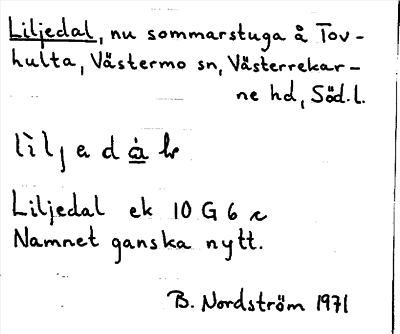 Liljedal, nu sommarstuga å Tov-
hulta, Västermo sn, Västerrekar-
ne hd, Söd.l.
Liljedal ek 10 G 6 c
Namnet ganska nytt.
B. Nordström 1971